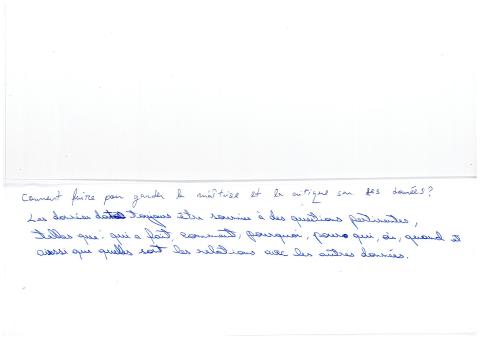 Comment faire pour garder la maîtrise et la critique sur ses données?
Les données doivent toujours être soumises à des questions pertinentes,
telles que: qui a fait, comment, pourquoi, pour qui, où, quand et
aussi que quelles sont les relations avec les autres données.